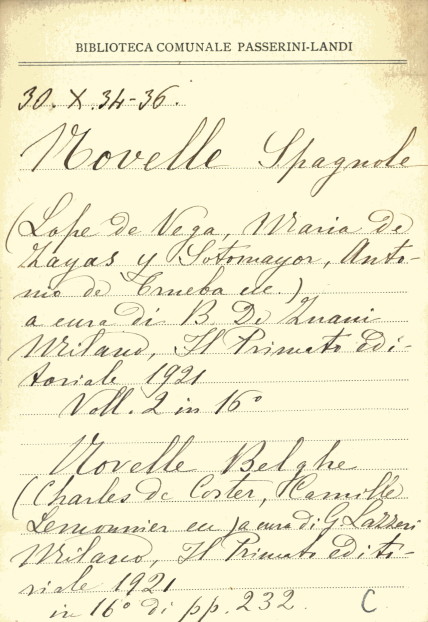 BIBLIOTECA COMUNALE PASSERINI-LANDI
30. X. 34-36.
Novelle Spagnole
(Lope de Vega, Maria de
Zayas y Sotomayor, Anto-
nio de Trueba ecc.)
a cura di B. De Zuani
Milano, Il Primato Edi-
toriale 1921
Voll. 2 in 16°
Novelle Belghe
(Charles de Coster, Camille
Lemonnier ecc) a cura di G. Lazzeri
Milano, Il Primato edito-
riale 1921
in 16° di pp. 232.
C